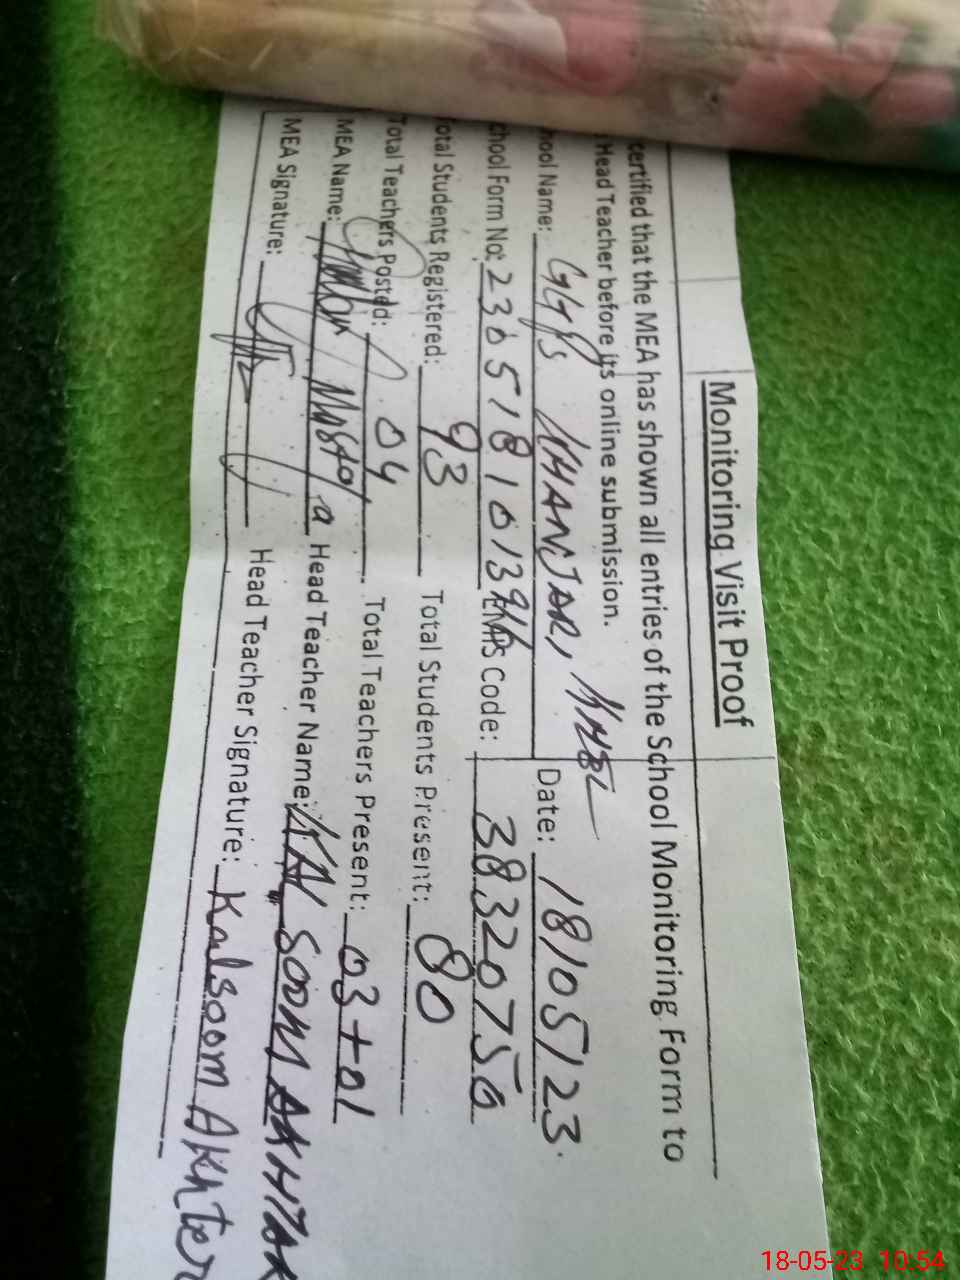 Monitoring Visit Proof
certified that the MEA has shown all entries of the School Monitoring Form to
Head Teacher before its online submission.
hool Name: GGPS KHANJAR, Date: 18/05/23.
chool Form No: EMIS Code: 38320756
otal Students Registered: 93 Total Students Present: 80
Total Teachers Posted: 04 Total Teachers Present: 03+01
MEA Name: Head Teacher Name: KALSOOM AKHTAR
MEA Signature: Head Teacher Signature: Kalsoom Akhter
18-05-23 10:54